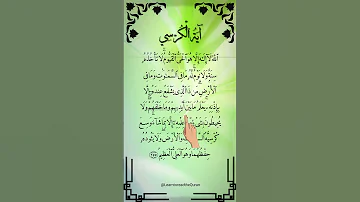 آيَةُ الْكُرْسِي
اللَّهُ لَا إِلَٰهَ إِلَّا هُوَ الْحَيُّ الْقَيُّومُ لَا تَأْخُذُهُ
سِنَةٌ وَلَا نَوْمٌ لَّهُ مَا فِي السَّمَٰوَٰتِ وَمَا فِي
الْأَرْضِ مَن ذَا الَّذِي يَشْفَعُ عِندَهُ إِلَّا
بِإِذْنِهِ يَعْلَمُ مَا بَيْنَ أَيْدِيهِمْ وَمَا خَلْفَهُمْ وَلَا
يُحِيطُونَ بِشَيْءٍ عِلْمِهِ إِلَّا بِمَا شَاءَ وَسِعَ
كُرْسِيُّهُ وَالْأَرْضَ وَلَا يَئُودُهُ
حِفْظُهُمَا وَهُوَ الْعَلِيُّ الْعَظِيمُ ٢٥٥